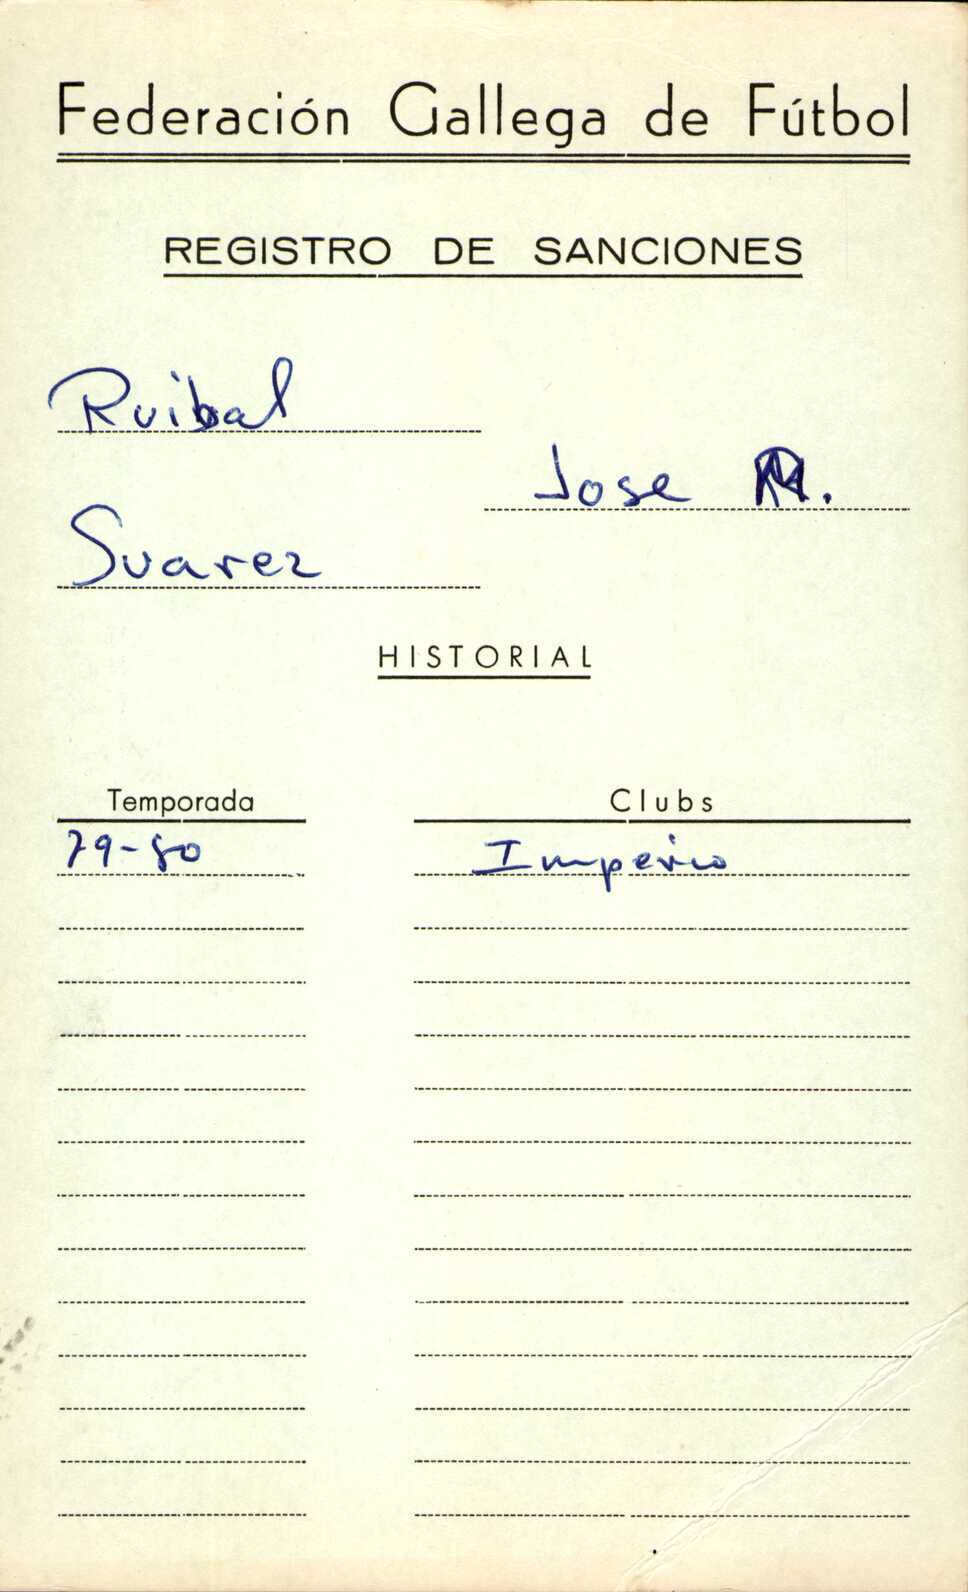 Federación Gallega de Fútbol
REGISTRO DE SANCIONES
Ruibal
Jose M.
Suarez
HISTORIAL
Temporada Clubs
79-80 Imperio